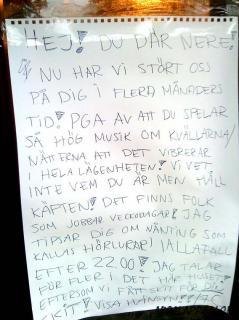 HEJ! DU DÄR NERE!
NU HAR VI STÖRT OSS
PÅ DIG I FLERA MÅNADERS
TID! PGA AV ATT DU SPELAR
SÅ HÖG MUSIK OM KVÄLLARNA/
NÄTTERNA ATT DET VIBRERAR
I HELA LÄGENHETEN! VI VET
INTE VEM DU ÄR MEN HÅLL
KÄFTEN! DET FINNS FOLK
SOM JOBBAR VECKODAGAR! JAG
TIPSAR DIG OM NÅNTING SOM
KALLAS HÖRLURAR! IALLAFALL
EFTER 22.00! JAG TALAR
FÖR FLER I DET HÄR HUSET!
EFTERSOM VI FÅTT SKIT FÖR DIG
SKIT! VISA HÄNSYN!